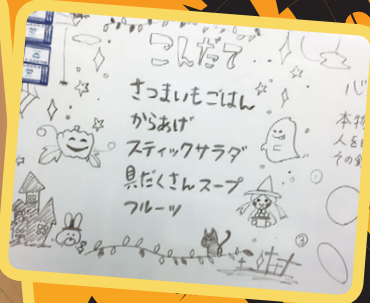 こんだて
さつまいもごはん
からあげ
スティックサラダ
具だくさんスープ
フルーツ
心
本物
人を
その